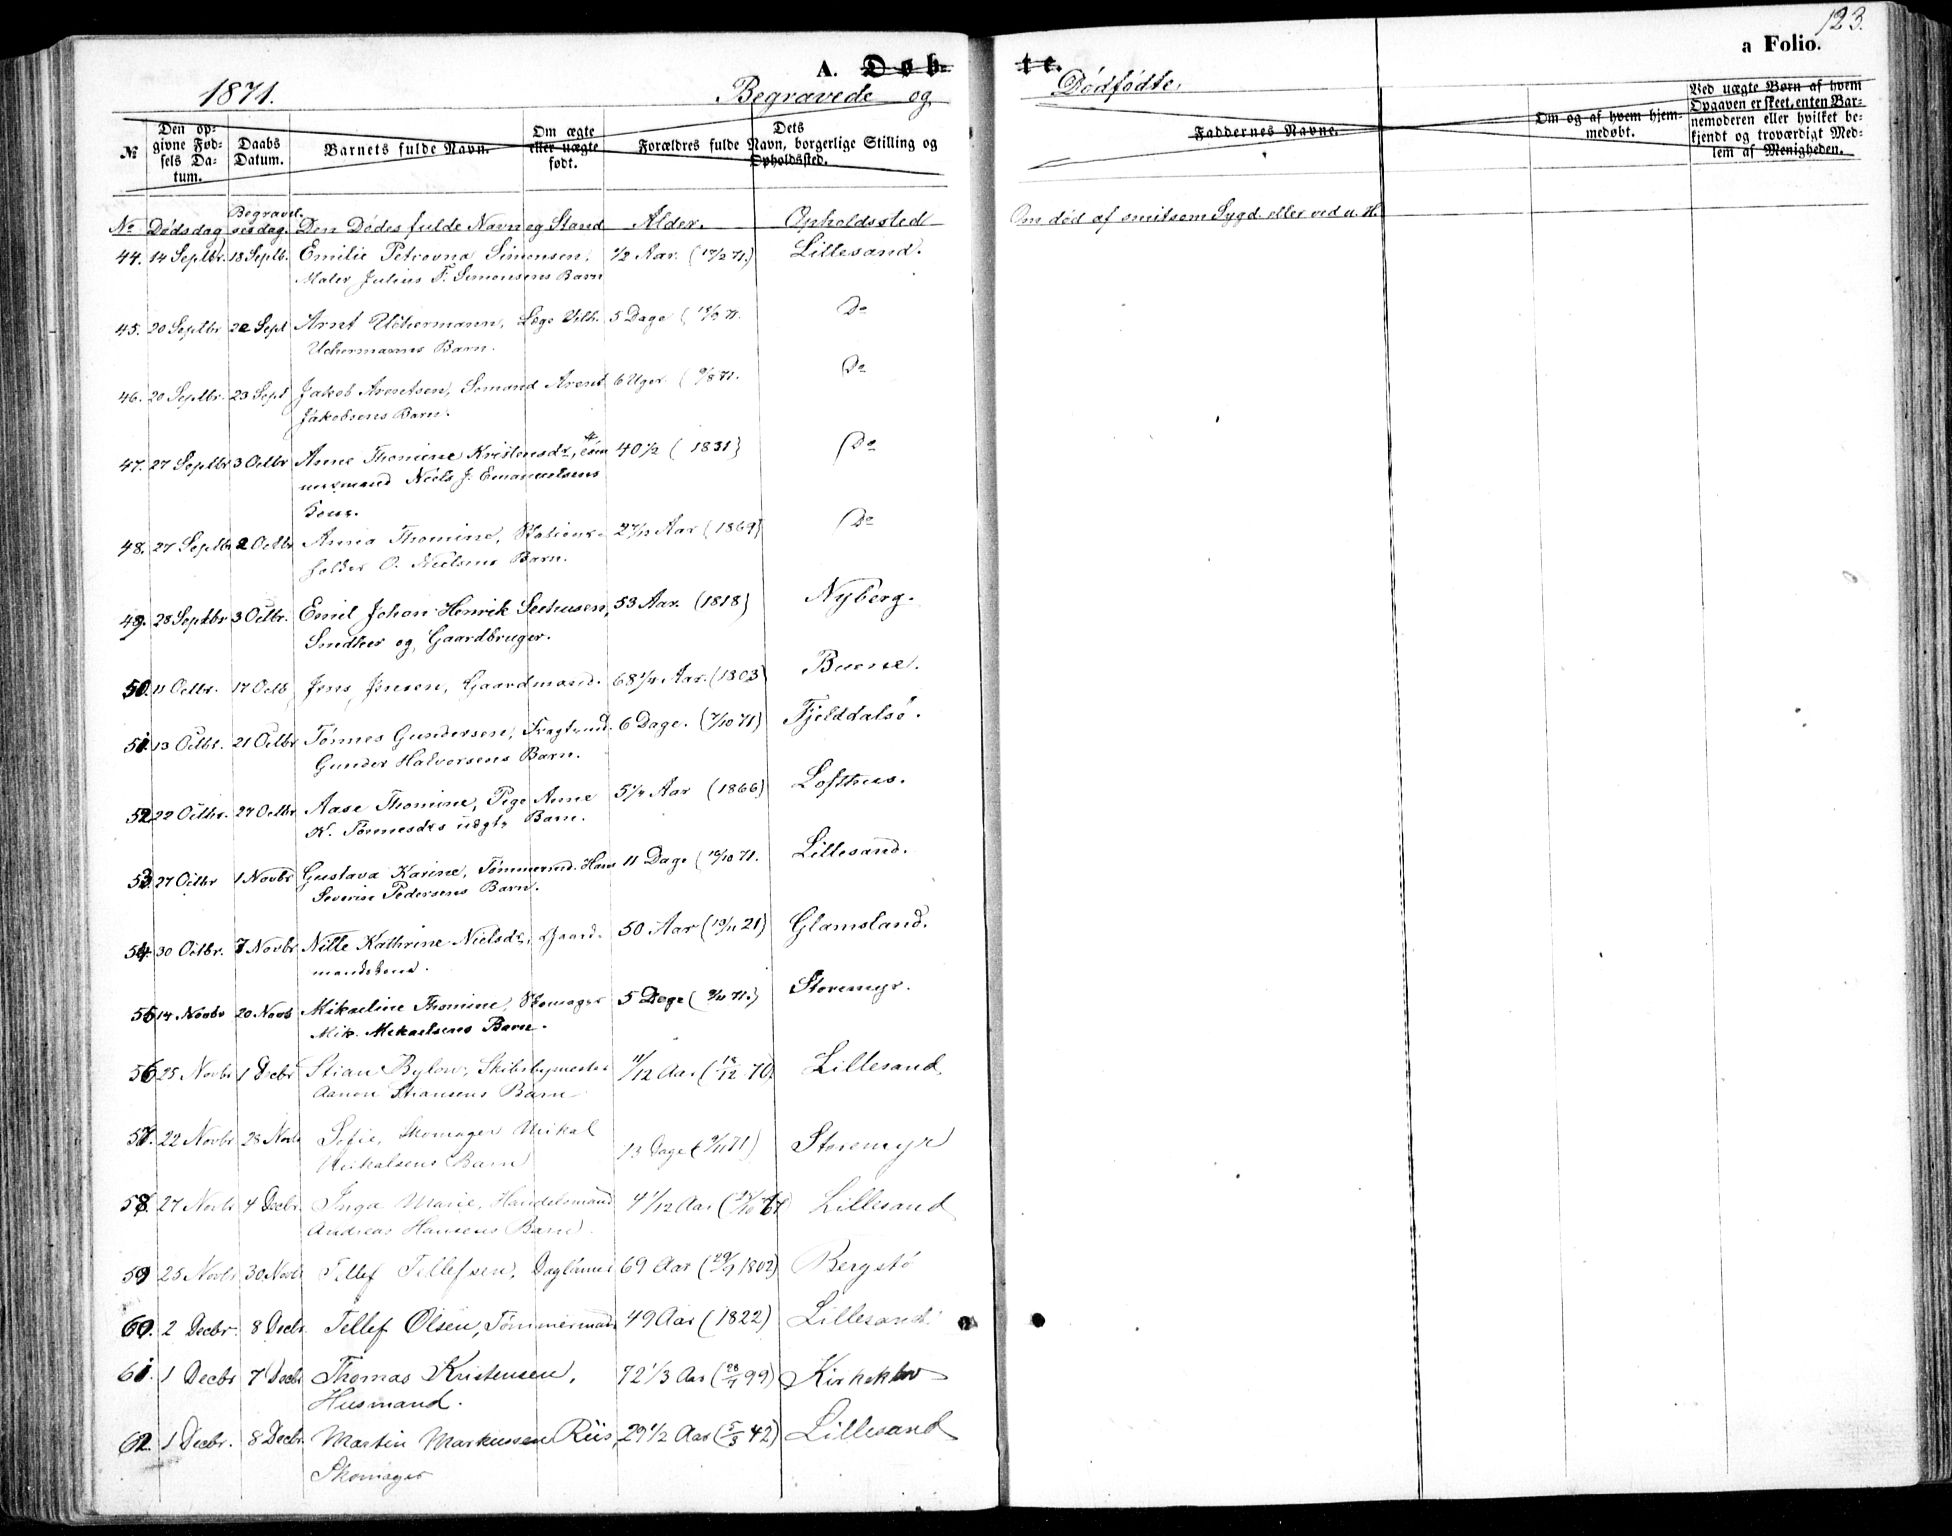 123.
a Folio.
A. Døb-
te.
1871.
Begravede og
Dødfødte,
№
Den op-
givne Fød-
sels Da-
tum.
Daabs
Datum.
Barnets fulde Navn.
Om ægte
eller uægte
født.
Dets
Forældres fulde Navn, borgerlige Stilling og
Opholdssted.
Faddernes Navne.
Om og af hvem hjem-
medøbt.
Ved uægte Børn af hvem
Opgaven er skeet, enten Bar-
nemoderen eller hvilket be-
kjendt og troværdigt Med-
lem af Menigheden.
No Dødsdag Begravel-
sesdag. Den Dødes fulde Navn og Stand Alder. Opholdssted
Om død af smitsom Sygd. eller ved u. H.
44. 14 Septbr. 18 Septb. Emilie Petrovna Simonsen, 1/2 Aar. (17/2 71.) Lillesand.
Maler Julius F. Simonsens Barn
45. 20 Septbr 22 Sept Arnt Uchermann, Læge Vilh. 5 Dage Do
Uchermanns Barn.
46. 20 Septbr. 23 Sept Jakob Arentsen, Sømand Arent 6 Uger. (9/8 71. Do
Jakobsens Barn.
47. 27 Septbr 3 Octbr Anne Thomine Kristensdr, Tøm 40 1/2 (1831) Do
mermand Niels J. Emanuelsens
Kone.
48. 27 Septbr 2 Octbr Anna Thomine, Stations- 2 7/12 Aar (1869) Do
holder O. Nielsens Barn.
49. 28 Septbr 3 Octbr. Emil Johan Henrik Seehusen, 53 Aar. (1818) Nyberg.
Snedker og Gaardbruger.
50. 11 Octbr. 17 Octb Jens Jensen, Gaardmand. 68 1/4 Aar. (1803) Buene.
51. 13 Octbr. 21 Octbr Tønnes Gundersen, Fragtmd. 6 Dage. (7/10 71) Fjelddalsø.
Gunder Halvorsens Barn.
52. 22 Octbr. 27 Octbr Aase Thomine, Pige Anne 5 1/4 Aar (1866) Lofthus.
K. Tønnesdrs uægte Barn.
53. 27 Octbr 1 Novbr Gustava Karine, Tømmermd. Hans 11 Dage (16/10 71. Lillesand.
Severin Pedersens Barn.
54. 30 Octbr. 7 Novbr Nille Kathrine Nielsdr, Gaard- 50 Aar (19/11 21) Glamsland.
mandskone.
55. 14 Novbr 20 Novb Mikaeline Thomine, Skomager 5 Dage (9/11 71.) Storemyr.
Mik. Mekaelsens Barn.
56. 25 Novbr 1 Decbr Stian Bylow, Skibsbymester 11/12 Aar (18/12 70. Lillesand
Aanon Stiansens Barn
57. 22 Novbr 28 Novb Sofie, Skomager Mikal 13 Dage (9/11 71) Storemyr
Mikalsens Barn
58. 27 Novbr 4 Decbr. Inga Marie, Handelsmand 4 1/12 Aar Lillesand
Andreas Hansens Barn
59 25 Novbr 30 Novb Tellef Tellefsen, Daglønner 69 Aar (29/9 1802) Bergstø
60. 2 Decbr. 8 Decb. Tellef Olsen, Tømmermand 49 Aar (1822) Lillesand
61. 1 Decbr 7 Decbr Thomas Kristensen, 72 1/3 Aar (28/7 99) Kirkeklev
Husmand.
62. 1 Decbr. 8 Decbr. Martin Markussen Riis, 29 1/2 Aar (5/3 42) Lillesand
Skomager